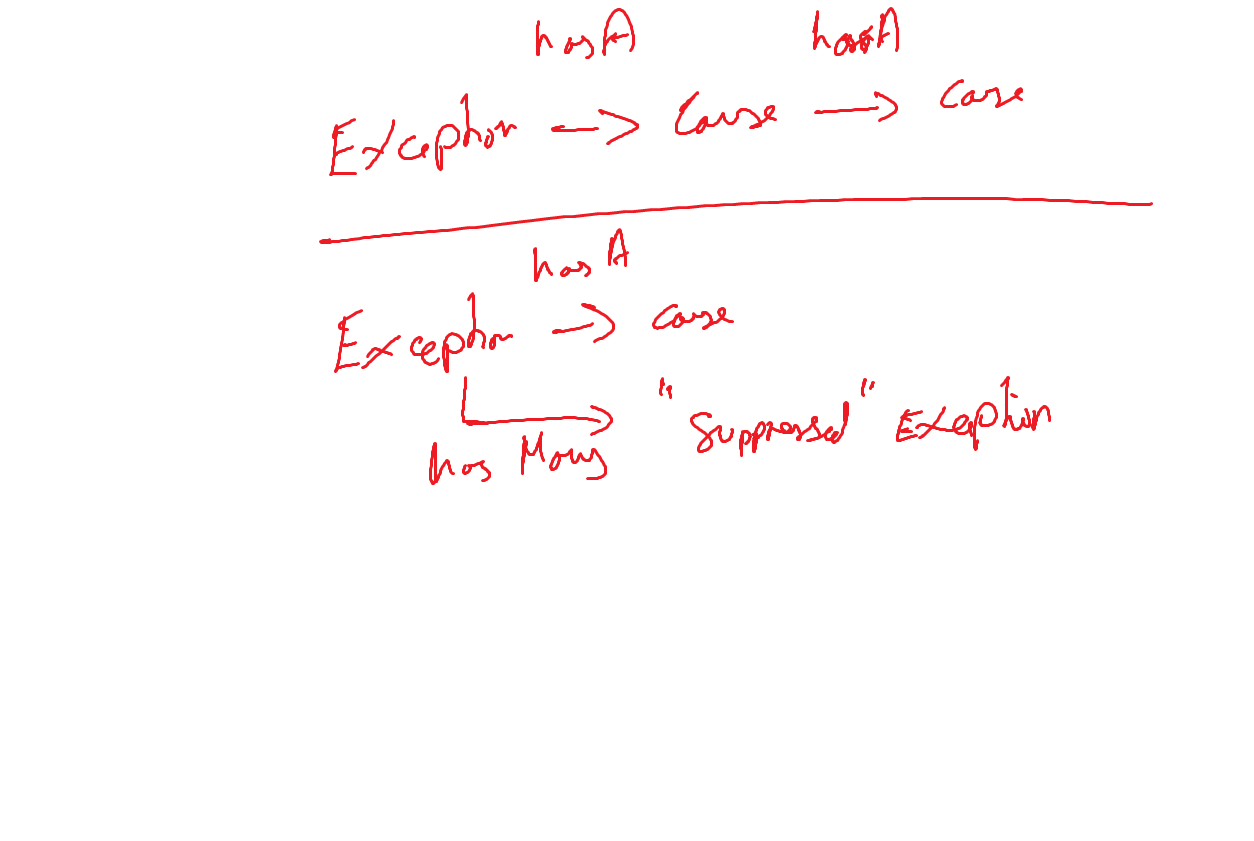 hasA hasA
Exception → Cause → Cause
has A
Exception → Cause
"Suppressed" Exception
has Many